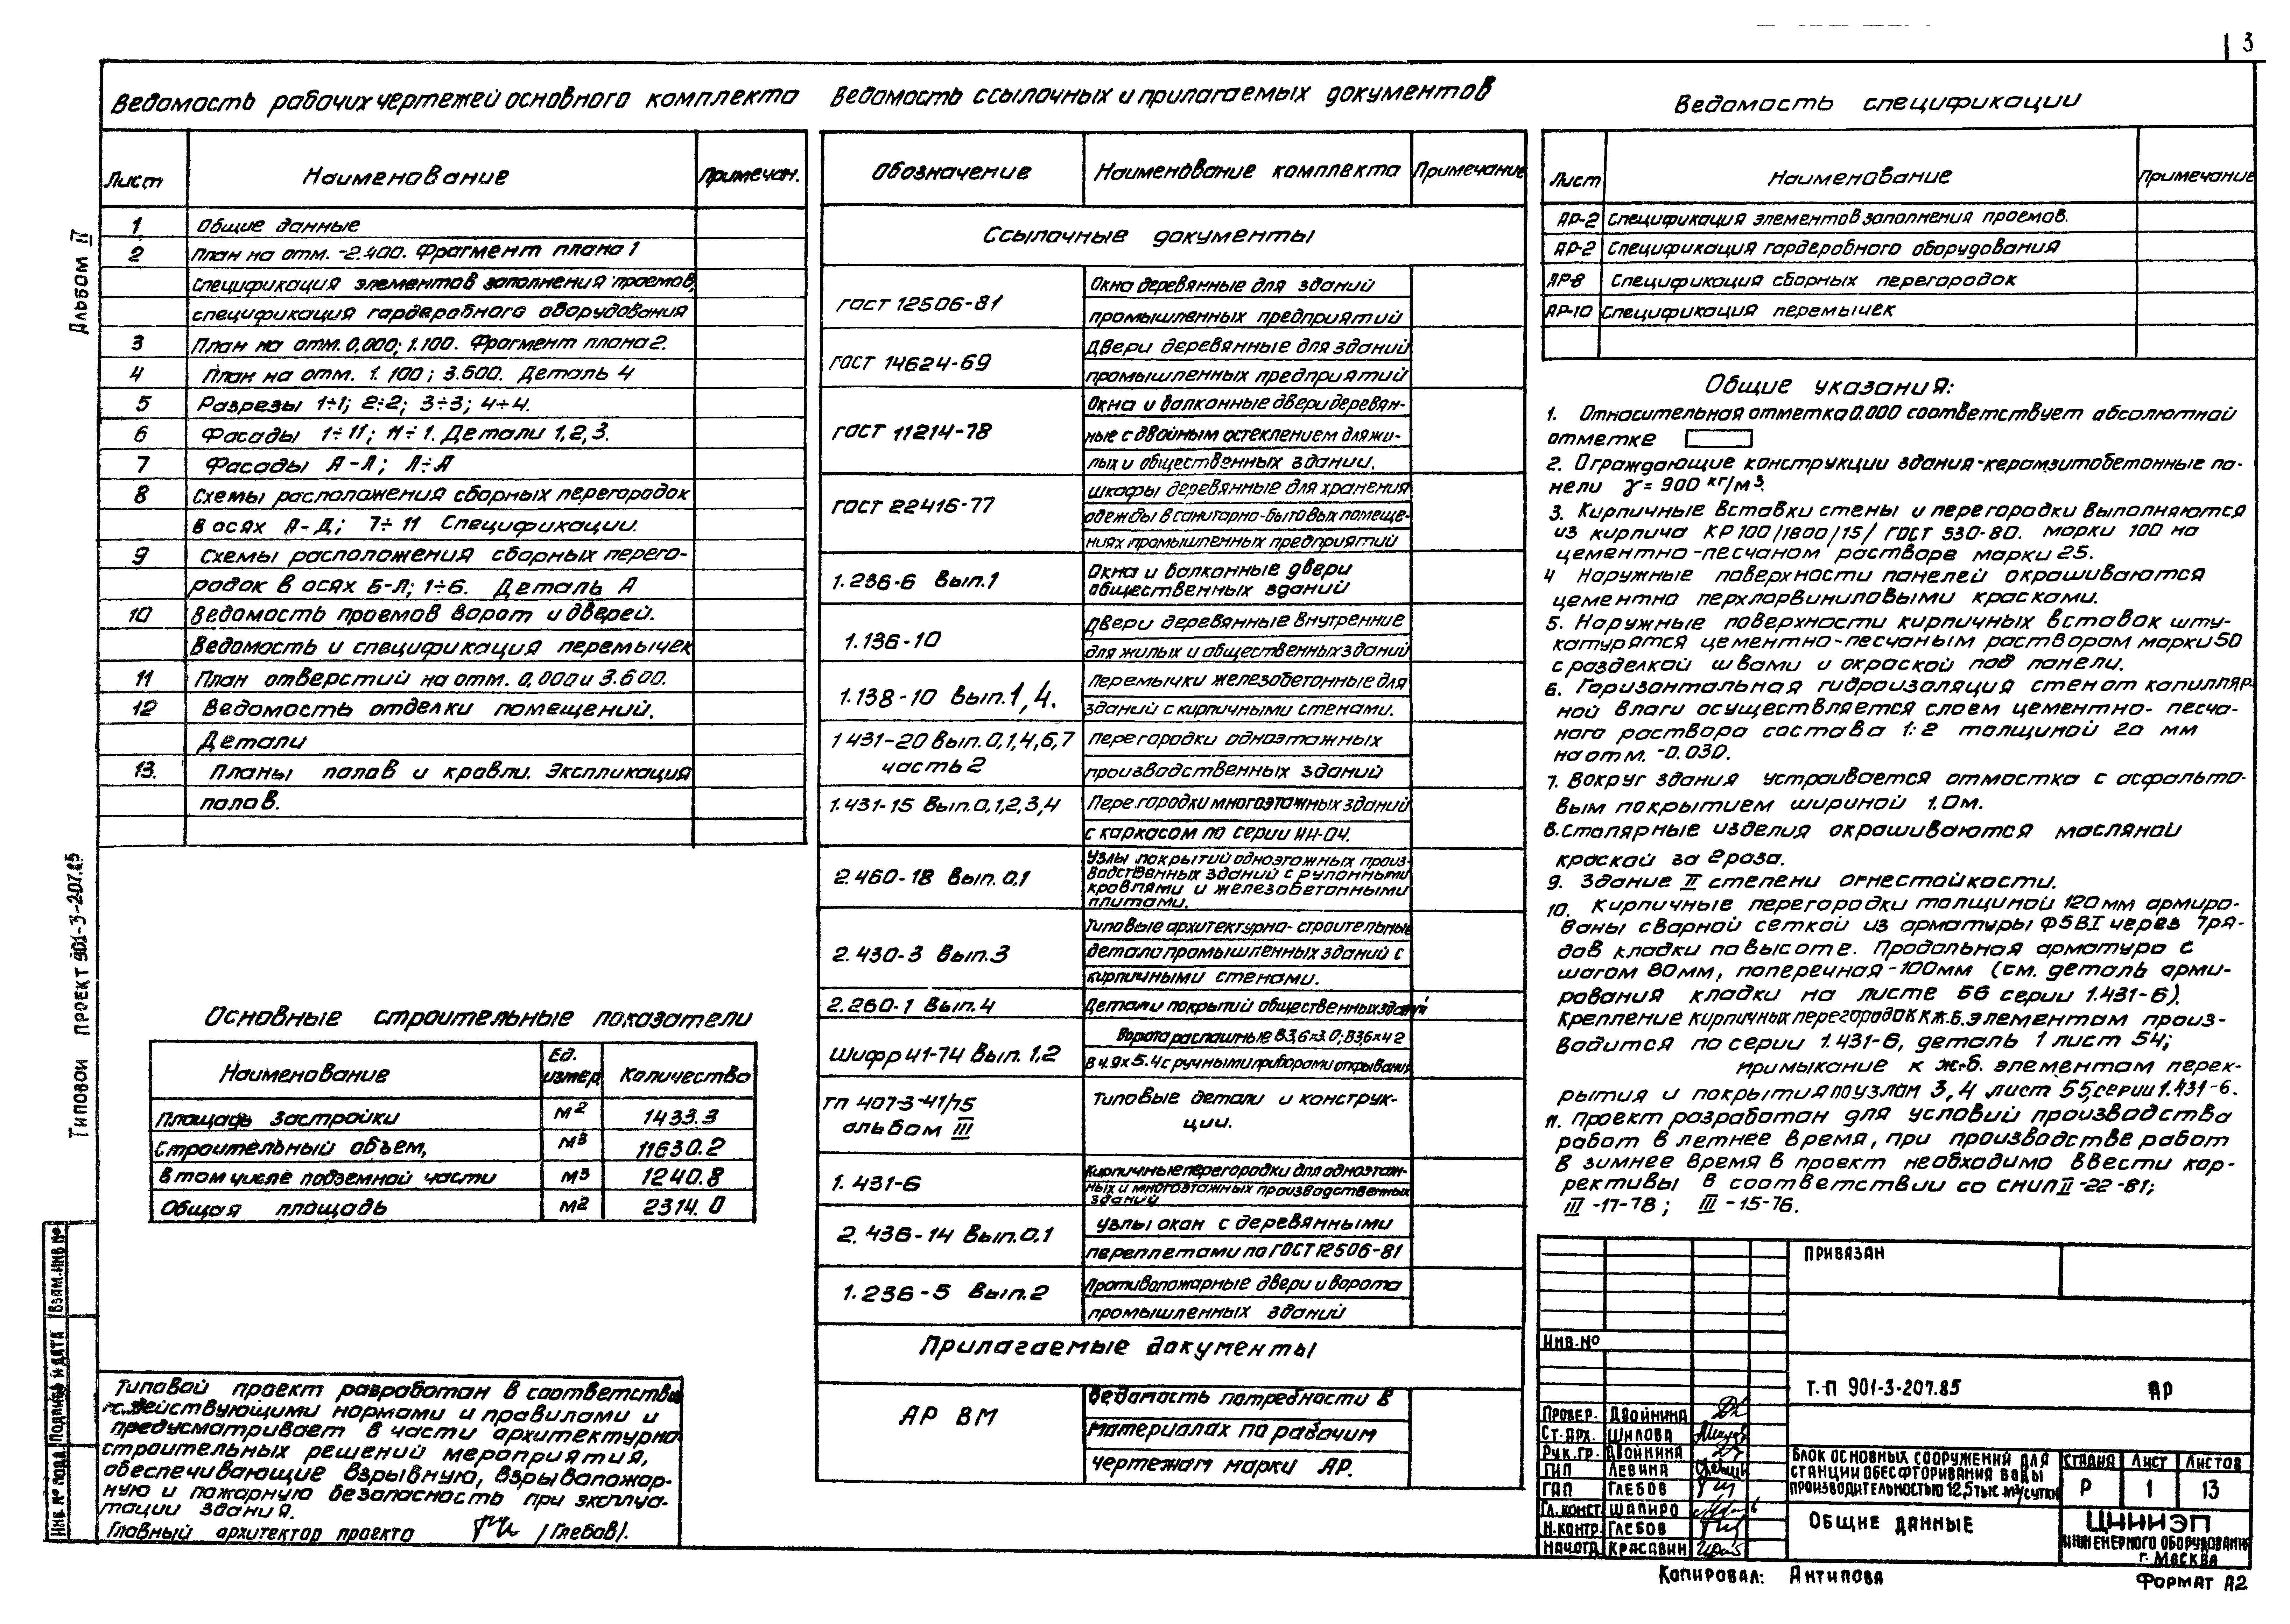 3
Альбом II
Типовой проект 901-3-207.85
Ведомость рабочих чертежей основного комплекта
Лист Наименование Примечан.
1 Общие данные
2 План на отм. -2.400. Фрагмент плана 1
спецификация элементов заполнения проемов,
спецификация гардеробного оборудования
3 План на отм. 0,000; 1.100. Фрагмент плана 2.
4 План на отм. 1.100; 3.600. Деталь 4
5 Разрезы 1÷1; 2÷2; 3÷3; 4÷4.
6 Фасады 1÷11; 11÷1. Детали 1,2,3.
7 Фасады А-Л; Л÷А
8 Схемы расположения сборных перегородок
в осях А-Д; 7÷11 Спецификации.
9 Схемы расположения сборных перего-
родок в осях Б-Л; 1÷6. Деталь А
10 Ведомость проемов ворот и дверей.
Ведомость и спецификация перемычек
11 План отверстий на отм. 0,000 и 3.600.
12 Ведомость отделки помещений.
Детали
13. Планы полов и кровли. Экспликация
полов.
Основные строительные показатели
Наименование Ед. измер. Количество
Площадь застройки м2 1433.3
Строительный объем, м3 11630.2
в том числе подземной части м3 1240.8
Общая площадь м2 2314.0
Типовой проект разработан в соответствии
с действующими нормами и правилами и
предусматривает в части архитектурно
строительных решений мероприятия,
обеспечивающие взрывную, взрывопожар-
ную и пожарную безопасность при эксплуа-
тации здания.
Главный архитектор проекта /Глебов/.
Взам. инв №
Подпись и дата
Инв. № подл.
Ведомость ссылочных и прилагаемых документов
Обозначение Наименование комплекта Примечание
Ссылочные документы
ГОСТ 12506-81 Окна деревянные для зданий
промышленных предприятий
ГОСТ 14624-69 Двери деревянные для зданий
промышленных предприятий
ГОСТ 11214-78 Окна и балконные двери деревян-
ные с двойным остеклением для жи-
лых и общественных зданий.
ГОСТ 22415-77 шкафы деревянные для хранения
одежды в санитарно-бытовых помеще-
ниях промышленных предприятий
1.236-6 Вып.1 Окна и балконные двери
общественных зданий
1.136-10 Двери деревянные внутренние
для жилых и общественных зданий
1.138-10 Вып.1,4. Перемычки железобетонные для
зданий с кирпичными стенами.
1 431-20 Вып. 0,1,4,6,7 Перегородки одноэтажных
часть 2 производственных зданий
1.431-15 Вып.0,1,2,3,4 Перегородки многоэтажных зданий
с каркасом по серии ИИ-04.
2.460-18 Вып. 0,1 Узлы покрытий одноэтажных произ-
водственных зданий с рулонными
кровлями и железобетонными
плитами.
2.430-3 Вып.3 Типовые архитектурно-строительные
детали промышленных зданий с
кирпичными стенами.
2.260-1 Вып.4 Детали покрытий общественных зданий
Шифр 41-74 Вып. 1,2 Ворота распашные В3,6×3.0; В3,6×4 2
В 4.9×5.4 с ручными приборами открывания
ТП 407-3-41/75 Типовые детали и конструк-
альбом III ции.
1. 431-6 Кирпичные перегородки для одноэтаж-
ных и многоэтажных производственных
зданий
2. 436-14 Вып.0,1 Узлы окон с деревянными
переплетами по ГОСТ 12506-81
1.236-5 Вып.2 Противопожарные двери и ворота
промышленных зданий
Прилагаемые документы
АР ВМ Ведомость потребности в
материалах по рабочим
чертежам марки АР.
Ведомость спецификации
Лист Наименование Примечание
АР-2 Спецификация элементов заполнения проемов.
АР-2 Спецификация гардеробного оборудования
АР-8 Спецификация сборных перегородок
АР-10 Спецификация перемычек
Общие указания:
1. Относительная отметка 0.000 соответствует абсолютной
отметке
2. Ограждающие конструкции здания-керамзитобетонные па-
нели γ = 900 кг/м3.
3. Кирпичные вставки стены и перегородки выполняются
из кирпича КР 100/1800/15/ ГОСТ 530-80. марки 100 на
цементно-песчаном растворе марки 25.
4 Наружные поверхности панелей окрашиваются
цементно перхлорвиниловыми красками.
5. Наружные поверхности кирпичных вставок шту-
катурятся цементно-песчаным раствором марки 50
с разделкой швами и окраской под панели.
6. Горизонтальная гидроизоляция стен от капилляр-
ной влаги осуществляется слоем цементно-песча-
ного раствора состава 1:2 толщиной 20 мм
на отм. -0.030.
7. Вокруг здания устраивается отмостка с асфальто-
вым покрытием шириной 1.0м.
8. Столярные изделия окрашиваются масляной
краской за 2 раза.
9. Здание II степени огнестойкости.
10. Кирпичные перегородки толщиной 120мм армиро-
ваны сварной сеткой из арматуры Ф5ВI через 7 ря-
дов кладки по высоте. Продольная арматура с
шагом 80мм, поперечная-100мм (см. деталь арми-
рования кладки на листе 56 серии 1.431-6).
Крепление кирпичных перегородок к ж.б. элементам произ-
водится по серии 1.431-6, деталь 1 лист 54;
примыкание к ж.б. элементам перек-
рытия и покрытия по узлам 3,4 лист 55, серии 1.431-6.
11. Проект разработан для условий производства
работ в летнее время, при производстве работ
в зимнее время в проект необходимо ввести кор-
рективы в соответствии со СНИП II-22-81;
III -17-78; III -15-76.
Привязан
Инв. №
Т.-П 901-3-207.85 АР
Провер. Двойнина
Ст. арх. Шилова
Рук. гр. Двойнина
ГИП Левина
ГАП Глебов
Гл. конст. Шапиро
Н. контр. Глебов
Нач отд Красавин
Блок основных сооружений для
станции обесфторивания воды
производительностью 12,5 тыс. м3/сутки
Стадия Лист Листов
Р 1 13
Общие данные
ЦНИИЭП
инженерного оборудования
г. Москва
Копировал: Антипова
Формат А2